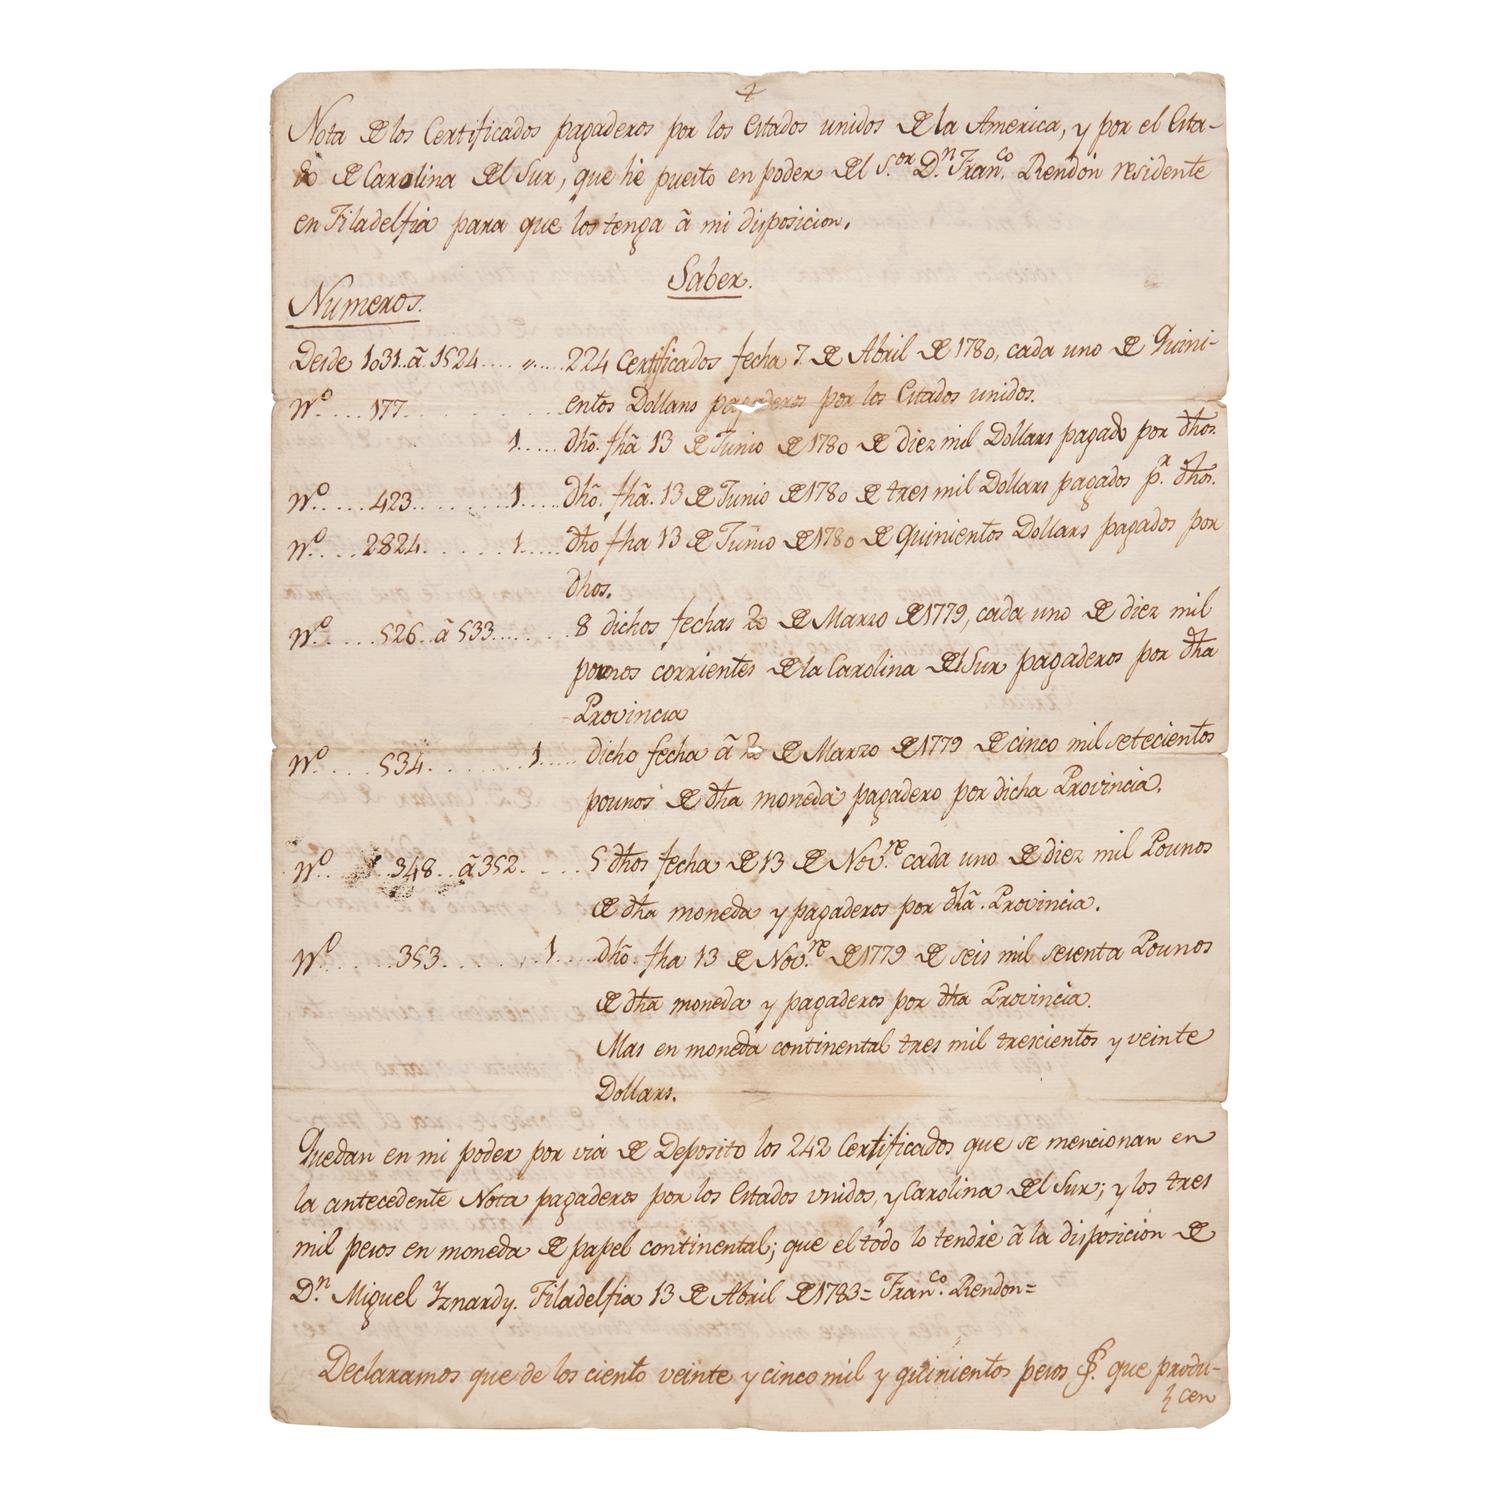 Nota de los Certificados pagaderos por los Estados unidos de la America, y por el Esta-
do de Carolina del Sur, que hé puesto en poder del S.or D.n Fran.co Rendon residente
en Filadelfia para que los tenga â mi disposicion.
Saber.
Numeros.
Desde 1031..â.1524....„.....224 Certificados fecha 7 de Abril de 1780, cada uno de Quini-
N.o....177..........entos Dollars pagaderos por los Estados unidos.
1.....dhô. fhâ 13 de Junio de 1780 de diez mil Dollars pagado por dhos.
N.o....423..........1.....dhô. fhâ. 13 de Junio de 1780 de tres mil Dollars pagados p.r dhos.
N.o...2824.......1.....dho fha 13 de Junio de 1780 de quinientos Dollars pagados por
dhos.
N.o....526..â 533........8 dichos fechas 20 de Marzo de 1779, cada uno de diez mil
pounos corrientes de la Carolina del Sur pagaderos por dha
Provincia
N.o....534........1.....dicho fecha â 20 de Marzo de 1779 de cinco mil setecientos
pounos de dha moneda pagadero por dicha Provincia.
N.o....348..â 352.....5 dhos fecha de 13 de Nov.re cada uno de diez mil Pounos
de dha moneda y pagaderos por dhâ. Provincia.
N.o.....353.......1.....dhô. fha 13 de Nov.re de 1779 de seis mil sesenta Pounos
de dha moneda y pagaderos por dha Provincia.
Mas en moneda continental tres mil trescientos y veinte
Dollars.
Quedan en mi poder por via de Deposito los 242 Certificados que se mencionan en
la antecedente Nota pagaderos por los Estados vnidos, y Carolina del Sur; y los tres
mil pesos en moneda de papel continental; que el todo lo tendré â la disposicion de
D.n Miguel Yznardy. Filadelfia 13 de Abril de 1783= Fran.co Rendon=
Declaramos que de los ciento veinte y cinco mil y quinientos pesos f. que produ-
cen